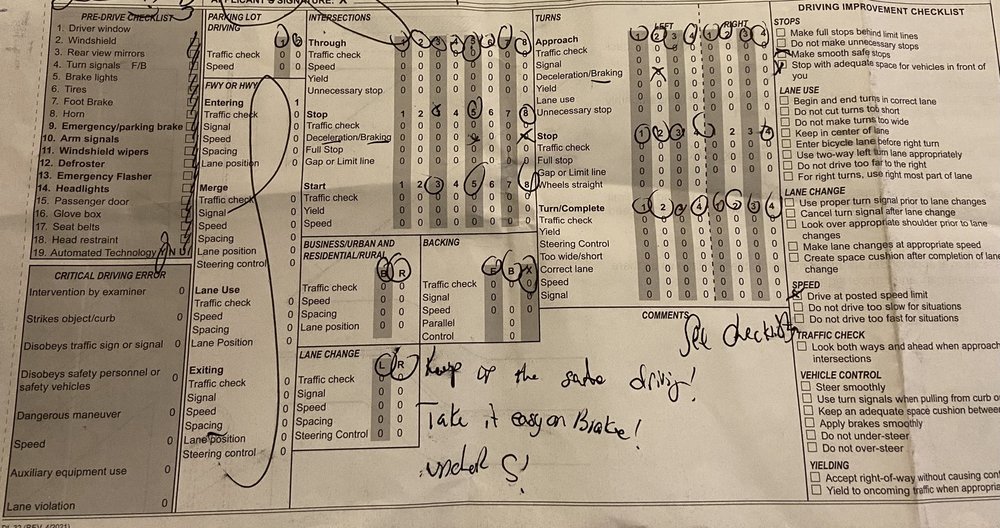 APPLICANT'S SIGNATURE: X
PRE-DRIVE CHECKLIST
1. Driver window
2. Windshield
3. Rear view mirrors
4. Turn signals F/B
5. Brake lights
6. Tires
7. Foot Brake
8. Horn
9. Emergency/parking brake
10. Arm signals
11. Windshield wipers
12. Defroster
13. Emergency Flasher
14. Headlights
15. Passenger door
16. Glove box
17. Seat belts
18. Head restraint
19. Automated Technology
CRITICAL DRIVING ERROR
Intervention by examiner 0
Strikes object/curb 0
Disobeys traffic sign or signal 0
Disobeys safety personnel or
safety vehicles 0
Dangerous maneuver 0
Speed 0
Auxiliary equipment use 0
Lane violation 0
PARKING LOT
DRIVING
Traffic check 0 0
Speed 0 0
FWY OR HWY
Entering 1
Traffic check 0
Signal 0
Speed 0
Spacing 0
Lane position 0
Merge
Traffic check 0
Signal 0
Speed 0
Spacing 0
Lane position 0
Steering control 0
Lane Use
Traffic check 0
Speed 0
Spacing 0
Lane Position 0
Exiting
Traffic check 0
Signal 0
Speed 0
Spacing 0
Lane position 0
Steering control 0
INTERSECTIONS
Through 1 2 3 4 5 6 7 8
Traffic check 0 0 0 0 0 0 0 0
Speed 0 0 0 0 0 0 0 0
Yield 0 0 0 0 0 0 0 0
Unnecessary stop 0 0 0 0 0 0 0 0
Stop 1 2 3 4 5 6 7 8
Traffic check 0 0 0 0 0 0 0 0
Deceleration/Braking 0 0 0 0 0 0
Full Stop 0 0 0 0 0 0 0 0
Gap or Limit line 0 0 0 0 0 0 0 0
Start 1 2 3 4 5 6 7 8
Traffic check 0 0 0 0 0 0 0 0
Yield 0 0 0 0 0 0 0 0
Speed 0 0 0 0 0 0 0 0
BUSINESS/URBAN AND
RESIDENTIAL/RURAL B R
Traffic check 0 0
Speed 0 0
Spacing 0 0
Lane position 0 0
BACKING F B X
Traffic check 0 0 0
Signal 0 0 0
Speed 0 0 0
Parallel 0
Control 0
LANE CHANGE L R
Traffic check 0 0
Signal 0 0
Speed 0 0
Spacing 0 0
Steering Control 0 0
TURNS LEFT RIGHT
Approach 1 2 3 4 1 2 3 4
Traffic check
Signal
Deceleration/Braking
Yield
Lane use
Unnecessary stop
Stop 1 2 3 4 1 2 3 4
Traffic check
Full stop
Gap or Limit line
Wheels straight
Turn/Complete 1 2 3 4 1 2 3 4
Traffic check
Yield
Steering Control
Too wide/short
Correct lane
Speed
Signal
COMMENTS
See checklist
Keep up the safe driving!
Take it easy on Brake!
under 5!
DRIVING IMPROVEMENT CHECKLIST
STOPS
Make full stops behind limit lines
Do not make unnecessary stops
Make smooth safe stops
Stop with adequate space for vehicles in front of
you
LANE USE
Begin and end turns in correct lane
Do not cut turns too short
Do not make turns too wide
Keep in center of lane
Enter bicycle lane before right turn
Use two-way left turn lane appropriately
Do not drive too far to the right
For right turns, use right most part of lane
LANE CHANGE
Use proper turn signal prior to lane changes
Cancel turn signal after lane change
Look over appropriate shoulder prior to lane
changes
Make lane changes at appropriate speed
Create space cushion after completion of lane
change
SPEED
Drive at posted speed limit
Do not drive too slow for situations
Do not drive too fast for situations
TRAFFIC CHECK
Look both ways and ahead when approach
intersections
VEHICLE CONTROL
Steer smoothly
Use turn signals when pulling from curb o
Keep an adequate space cushion between
Apply brakes smoothly
Do not under-steer
Do not over-steer
YIELDING
Accept right-of-way without causing conf
Yield to oncoming traffic when appropria
DL 32 (REV. 4/2021)